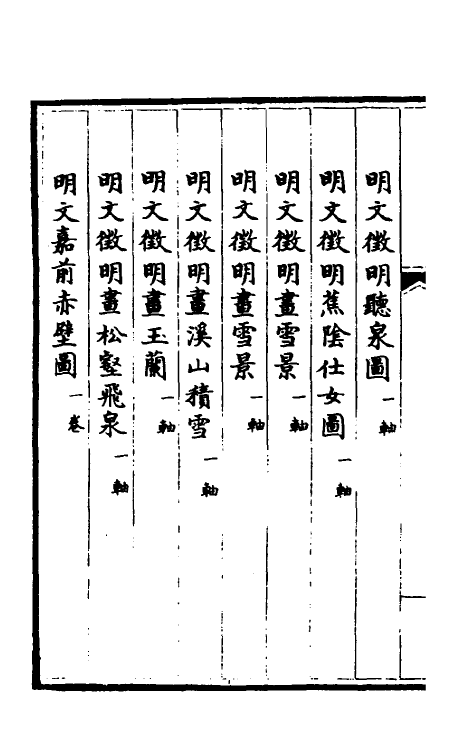 明文徵明聽泉圖一軸
明文徵明蕉陰仕女圖一軸
明文徵明畫雪景一軸
明文徵明畫雪景一軸
明文徵明畫溪山積雪一軸
明文徵明畫玉蘭一軸
明文徵明畫松壑飛泉一軸
明文嘉前赤壁圖一卷